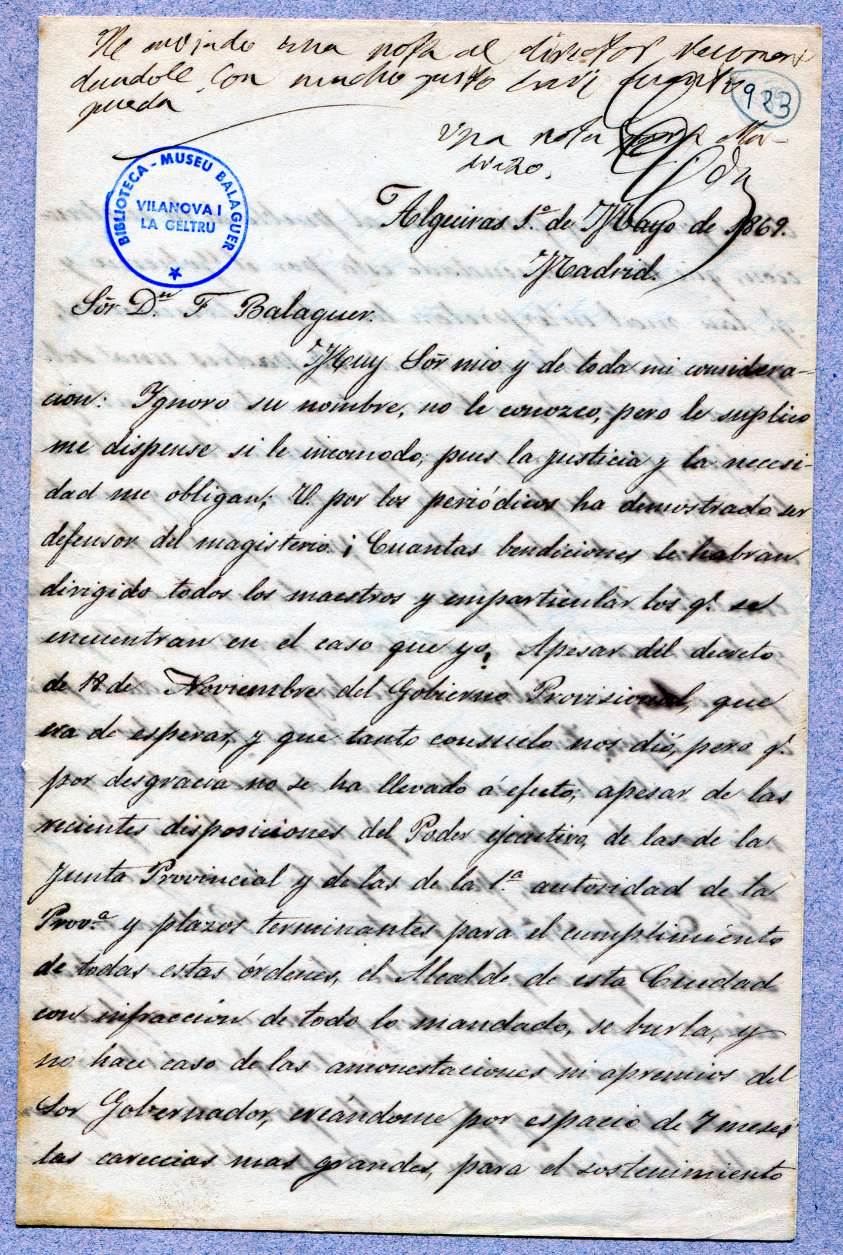 He mojado una nota al director recomen
dandole. Con mucho gusto haré cuanto
pueda.
923
Una nota para Ma-
BIBLIOTECA - MUSEU BALAGUER
VILANOVA I
LA GELTRU
Algeciras 1.º de Mayo de 1869.
Madrid.
Sōr D.n F. Balaguer.
Muy Sōr mio y de toda mi considera-
cion: Ignoro su nombre, no le conozco, pero le suplico
me dispense si le incomodo, pues la justicia y la necesi-
dad me obligan; V. por los periódicos ha demostrado ser
defensor del magisterio ¡Cuantas bendiciones le habran
dirigido todos los maestros y emparticular los q.e se
encuentran en el caso que yo! Apesar del decreto
de 18 de Noviembre del Gobierno Provisional, que
era de esperar, y que tanto consuelo nos dió, pero q.e
por desgracia no se ha llevado á efecto; apesar de las
recientes disposiciones del Poder ejecutivo, de las de la
Junta Provincial y de las de la 1.a autoridad de la
Prov.a y plazos terminantes para el cumplimiento
de todas estas órdenes, el Alcalde de esta Ciudad
con infracción de todo lo mandado, se burla, y
no hace caso de las amonestaciones ni apremios del
Sor Gobernador, creándome por espacio de 7 meses
las carecias mas grandes, para el sostenimiento